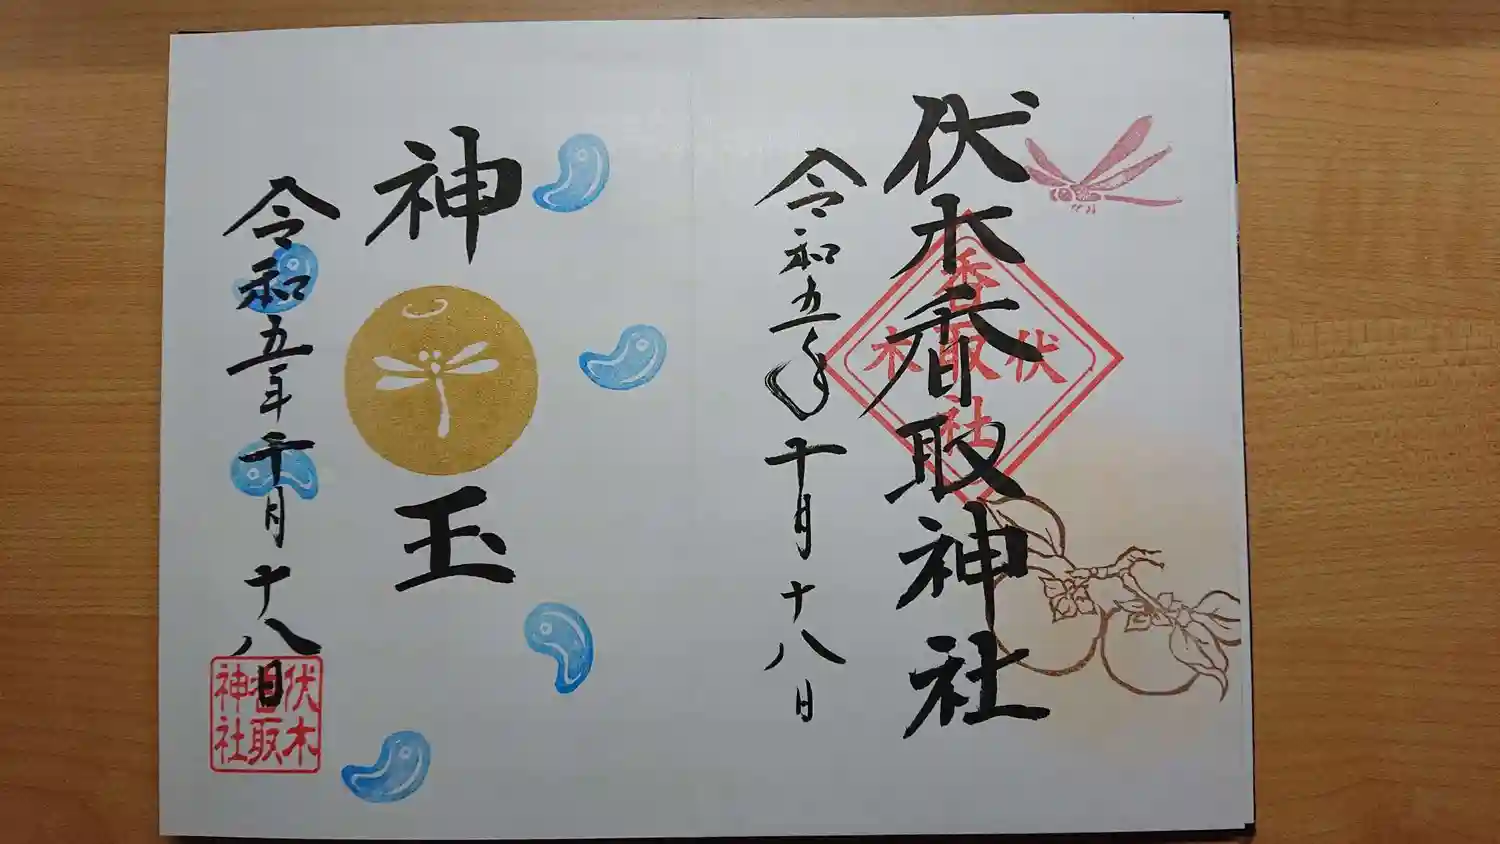 伏木香取神社
令和五年十月十八日
香取
伏木
社
神玉
令和五年十月十八日
伏木
香取
神社